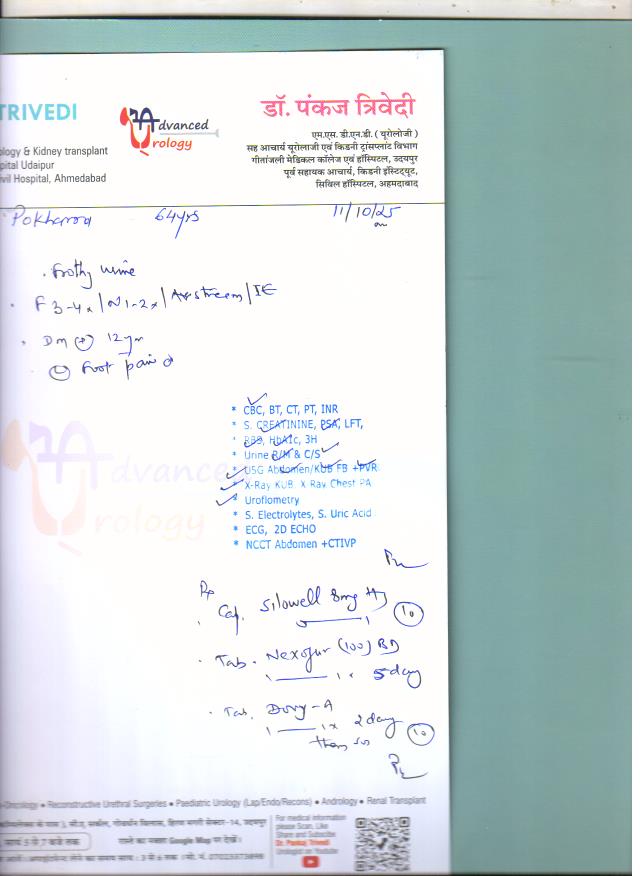 TRIVEDI
ology & Kidney transplant
pital Udaipur
ivil Hospital, Ahmedabad
Advanced
Urology
डॉ. पंकज त्रिवेदी
एम.एस. डी.एन.डी. ( यूरोलोजी )
सह आचार्य यूरोलोजी एवं किडनी ट्रांसप्लांट विभाग
गीतांजली मेडिकल कॉलेज एवं हॉस्पिटल, उदयपुर
पूर्व सहायक आचार्य, किडनी इंस्टिट्यूट,
सिविल हॉस्पिटल, अहमदाबाद
64yrs
11/10/25
Frothy urine
F 3-4x / N 1-2x / / IE
DM (+) 12 yr
foot pain
* CBC, BT, CT, PT, INR
* S. CREATININE, PSA, LFT,
* RBS, HbA1c, 3H
* Urine R/M & C/S
* USG Abdomen/KUB FB +PVR
* X-Ray KUB, X Ray Chest PA
* Uroflometry
* S. Electrolytes, S. Uric Acid
* ECG, 2D ECHO
* NCCT Abdomen +CTIVP
Advanced
Urology
Rx
Cap. Silowell 8mg 10
Tab. (100) BD
1 — 1 x 5 day
Tab. A
1 — 1 x 2 day 10
then
Oncology • Reconstructive Urethral Surgeries • Paediatric Urology (Lap/Endo/Recons) • Andrology • Renal Transplant
सायं 5 से 7 बजे तक
रास्ते का नक्शा Google Map पर देखें।
For medical information
please Scan, Like
Share and Subscribe
Dr. Pankaj Trivedi
Urologist on Youtube